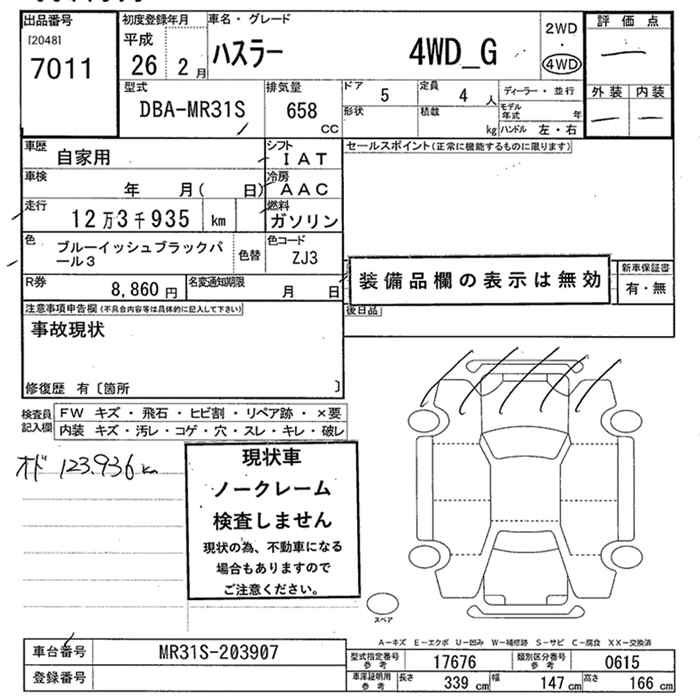 出品番号
[2048]
7011
初度登録年月
平成
26 2 月
車名・グレード
ハスラー 4WD_G
2WD
・
4WD
評価点
外装 内装
型式
DBA-MR31S
排気量
658
CC
ドア
5
定員
4 人
ディーラー・並行
形状
積載
kg
モデル年式 年
ハンドル 左・右
車歴
自家用
シフト
IAT
セールスポイント(正常に機能するものに限ります)
車検
年 月( 日)
冷房
AAC
走行
12万3千935 km
燃料
ガソリン
色
ブルーイッシュブラックパール3
色替
色コード
ZJ3
装備品欄の表示は無効
新車保証書
有・無
R券
8,860 円
名変通知期限
月 日
後日品
注意事項申告欄(不具合内容等は具体的に記入して下さい)
事故現状
修復歴 有〔箇所 〕
検査員記入欄
FW キズ・飛石・ヒビ割・リペア跡・×要
内装 キズ・汚レ・コゲ・穴・スレ・キレ・破レ
オド 123.936 km
現状車
ノークレーム
検査しません
現状の為、不動車になる
場合もありますので
ご注意ください。
スペア
A-キズ E-エクボ U-凹み W-補修跡 S-サビ C-腐食 XX-交換済
車台番号
MR31S-203907
型式指定番号
参考
17676
類別区分番号
参考
0615
登録番号
車庫証明用
参考
長さ
339 cm
幅
147 cm
高さ
166 cm